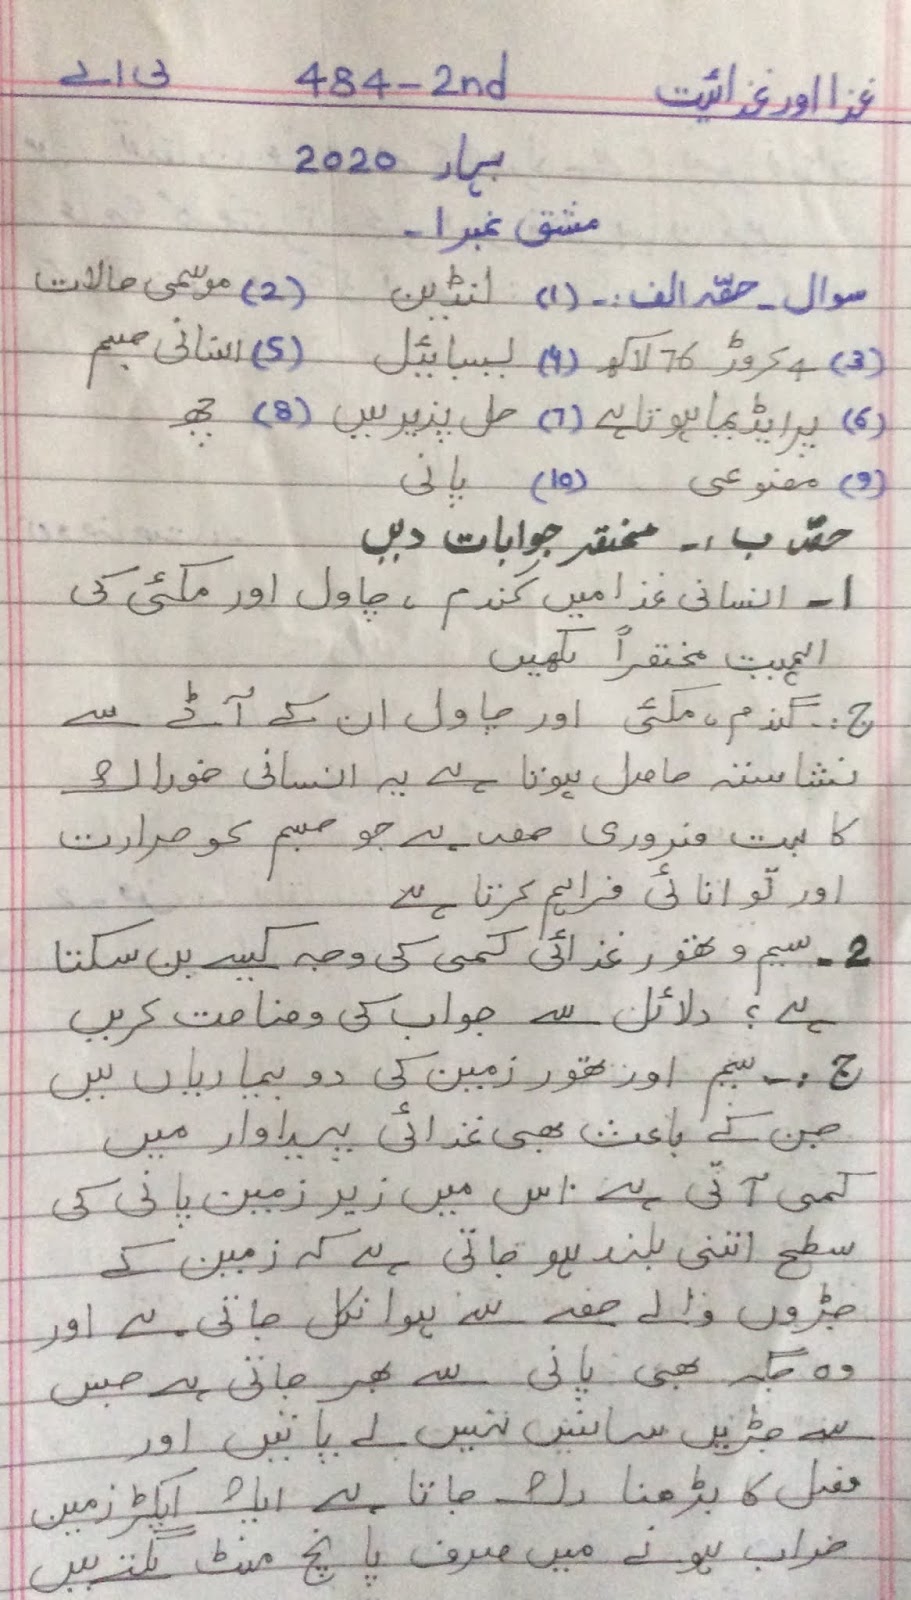 غذا اور غذائیت 484-2nd بی اے
بہار 2020
مشق نمبر 1۔
سوال۔ حصّہ الف:۔ (1) لنڈین (2) موسمی حالات
(3) 4 کروڑ 76 لاکھ (4) لیبائیل (5) انسانی جسم
(6) پرایڈیما ہوتا ہے (7) حل پذیر ہیں (8) چھ
(9) مصنوعی (10) پانی
حصّہ ب:۔ مختصر جوابات دیں
1۔ انسانی غذا میں گندم، چاول اور مکئی کی
اہمیت مختصراً لکھیں
ج:۔ گندم، مکئی اور چاول ان کے آٹے سے
نشاستہ حاصل ہوتا ہے یہ انسانی خوراک
کا بہت ضروری حصہ ہے جو جسم کو حرارت
اور توانائی فراہم کرتا ہے
2۔ سیم و تھور غذائی کمی کی وجہ کیسے بن سکتا
ہے؟ دلائل سے جواب کی وضاحت کریں
ج:۔ سیم اور تھور زمین کی دو بیماریاں ہیں
جن کے باعث بھی غذائی پیداوار میں
کمی آتی ہے اس میں زیر زمین پانی کی
سطح اتنی بلند ہو جاتی ہے کہ زمین کے
جڑوں والے حصے سے ہوا نکل جاتی ہے اور
وہ جگہ بھی پانی سے بھر جاتی ہے جس
سے جڑیں سانس نہیں لے پاتیں اور
فصل کا بڑھنا رک جاتا ہے ایک ایکڑ زمین
خراب ہونے میں صرف پانچ منٹ لگتے ہیں